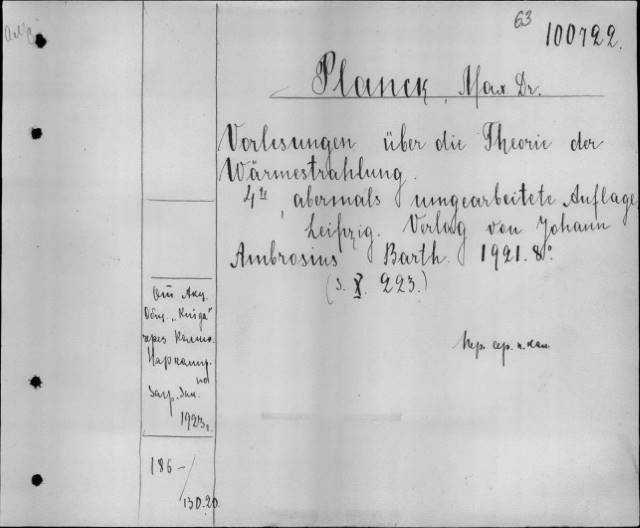 63
100722.
Planck, Max Dr.
Vorlesungen über die Theorie der
Wärmestrahlung.
4te, abermals umgearbeitete Auflage
Leipzig. Verlag von Johann
Ambrosius Barth. 1921. 8°.
(S. X. 223.)
Акц.
Общ. „Книга"
через
Наркомп.
по
Загр. Зак.
1923 г.
186 –
130.20